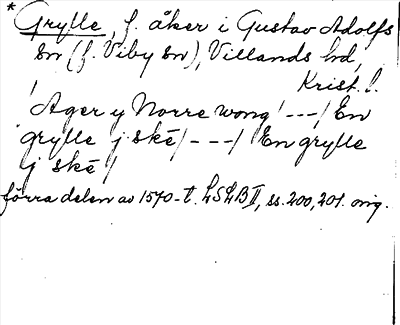 * Grylle, f. åker i Gustav Adolfs
sn (f. Viby sn), Villands hd,
Krist. l.
'Ager y Norre wong' ---/ En
grylle j ske/ - - -/ En grylle
j ske/
förra delen av 1570-t. LSLB II, ss. 200, 201. orig.